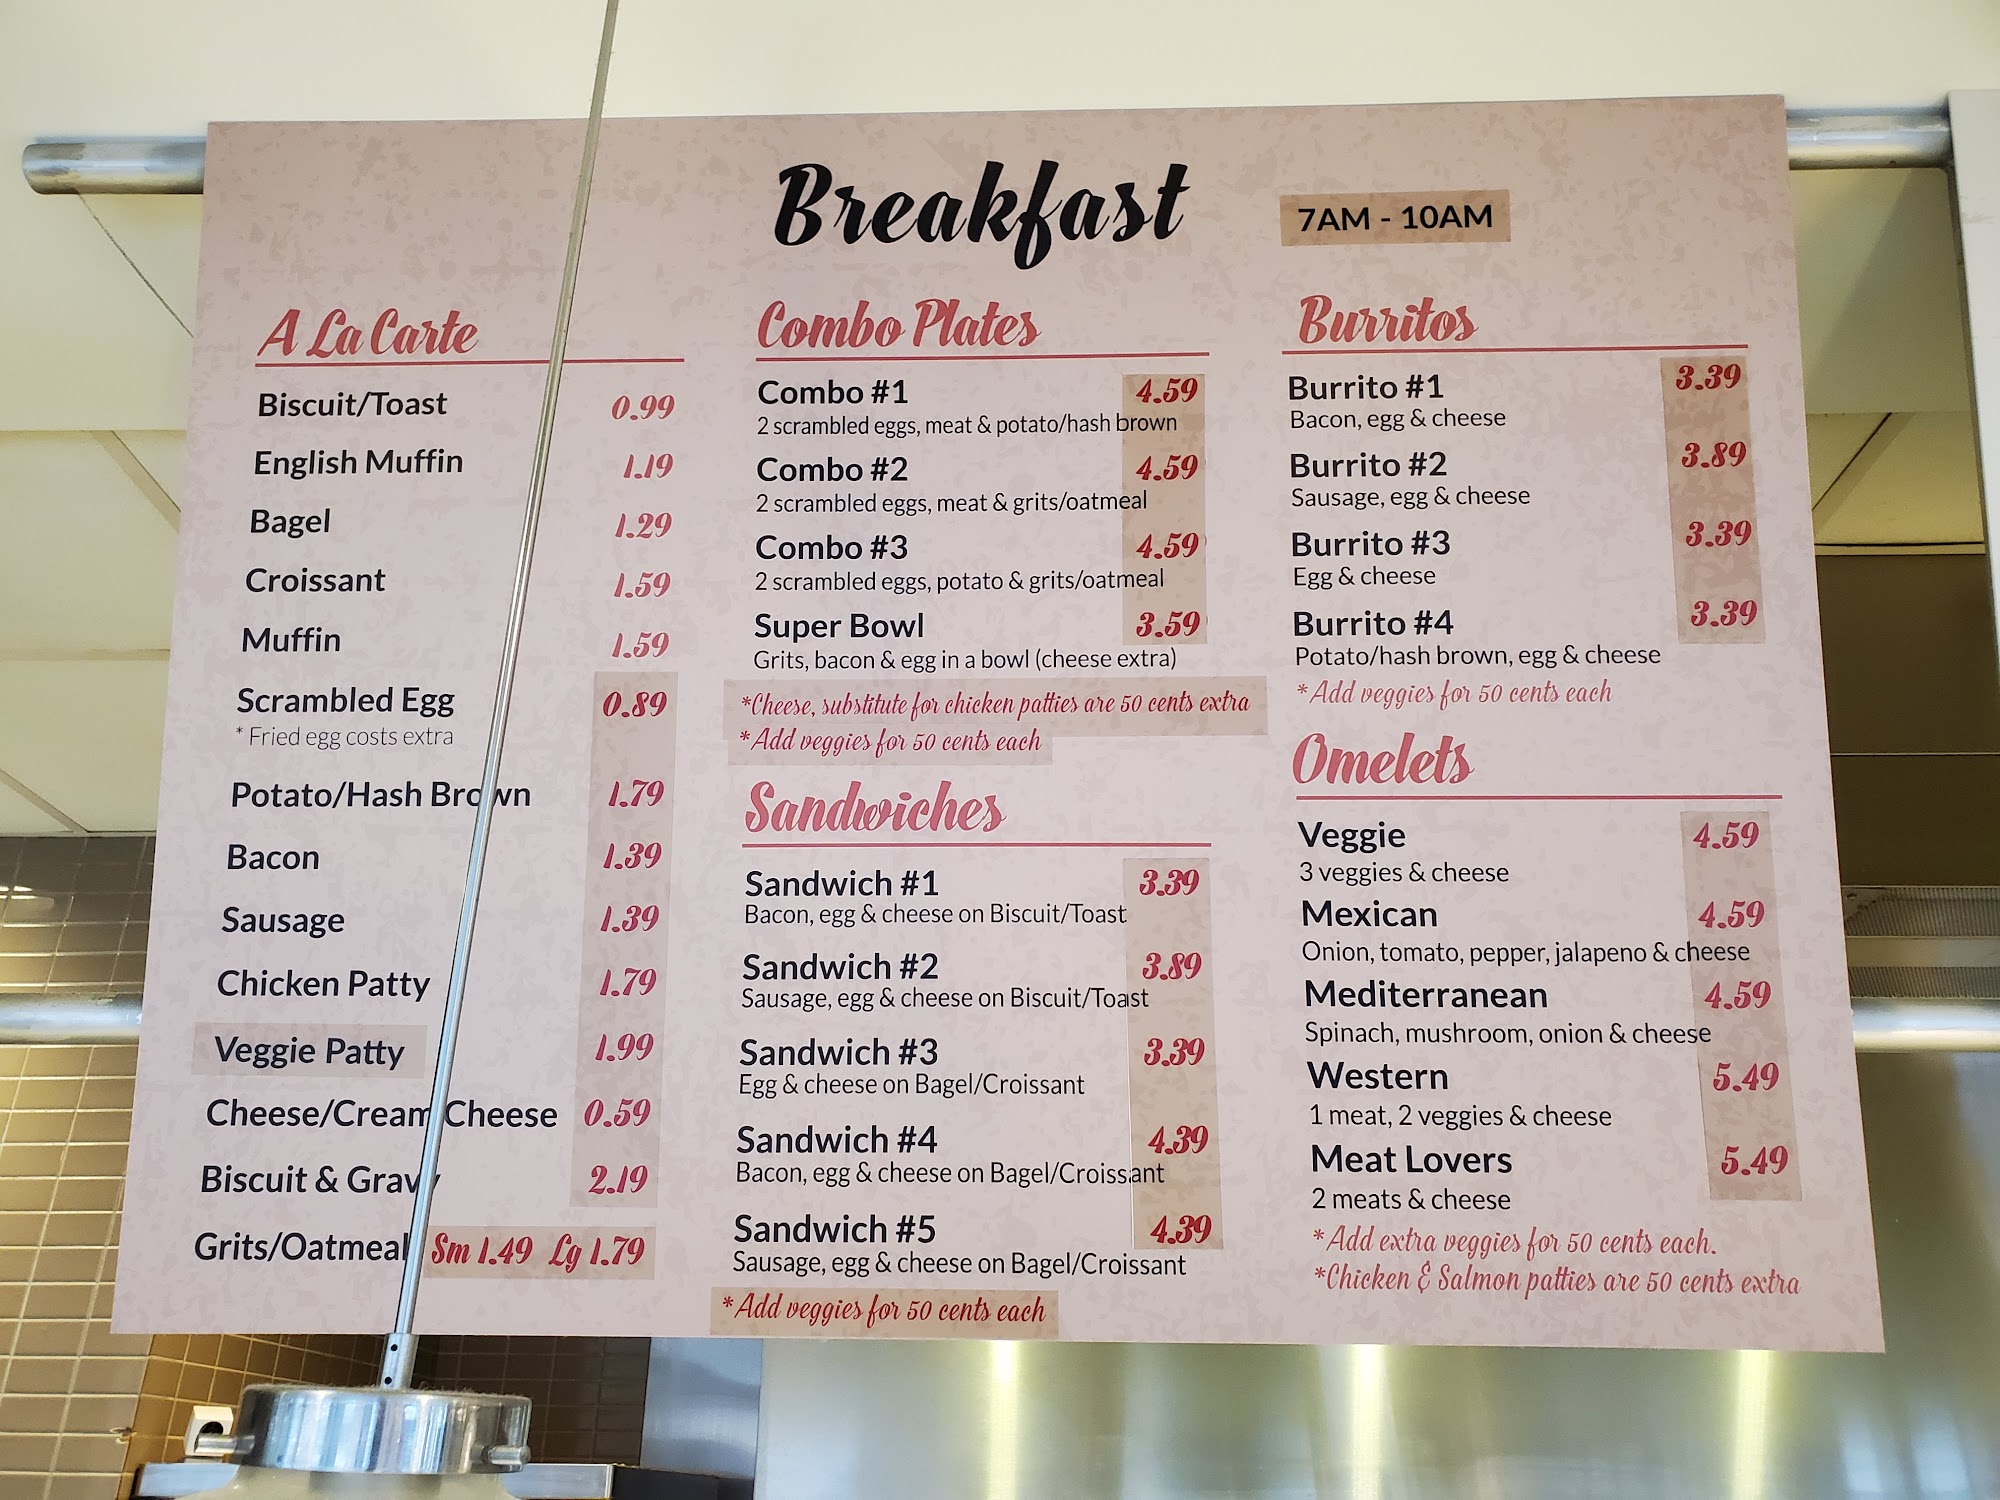 Breakfast
7AM - 10AM
A La Carte
Biscuit/Toast 0.99
English Muffin 1.19
Bagel 1.29
Croissant 1.59
Muffin 1.59
Scrambled Egg 0.89
* Fried egg costs extra
Potato/Hash Brown 1.79
Bacon 1.39
Sausage 1.39
Chicken Patty 1.79
Veggie Patty 1.99
Cheese/Cream Cheese 0.59
Biscuit & Gravy 2.19
Grits/Oatmeal Sm 1.49 Lg 1.79
Combo Plates
Combo #1 4.59
2 scrambled eggs, meat & potato/hash brown
Combo #2 4.59
2 scrambled eggs, meat & grits/oatmeal
Combo #3 4.59
2 scrambled eggs, potato & grits/oatmeal
Super Bowl 3.59
Grits, bacon & egg in a bowl (cheese extra)
*Cheese, substitute for chicken patties are 50 cents extra
*Add veggies for 50 cents each
Sandwiches
Sandwich #1 3.39
Bacon, egg & cheese on Biscuit/Toast
Sandwich #2 3.89
Sausage, egg & cheese on Biscuit/Toast
Sandwich #3 3.39
Egg & cheese on Bagel/Croissant
Sandwich #4 4.39
Bacon, egg & cheese on Bagel/Croissant
Sandwich #5 4.39
Sausage, egg & cheese on Bagel/Croissant
*Add veggies for 50 cents each
Burritos
Burrito #1 3.39
Bacon, egg & cheese
Burrito #2 3.89
Sausage, egg & cheese
Burrito #3 3.39
Egg & cheese
Burrito #4 3.39
Potato/hash brown, egg & cheese
*Add veggies for 50 cents each
Omelets
Veggie 4.59
3 veggies & cheese
Mexican 4.59
Onion, tomato, pepper, jalapeno & cheese
Mediterranean 4.59
Spinach, mushroom, onion & cheese
Western 5.49
1 meat, 2 veggies & cheese
Meat Lovers 5.49
2 meats & cheese
*Add extra veggies for 50 cents each.
*Chicken & Salmon patties are 50 cents extra